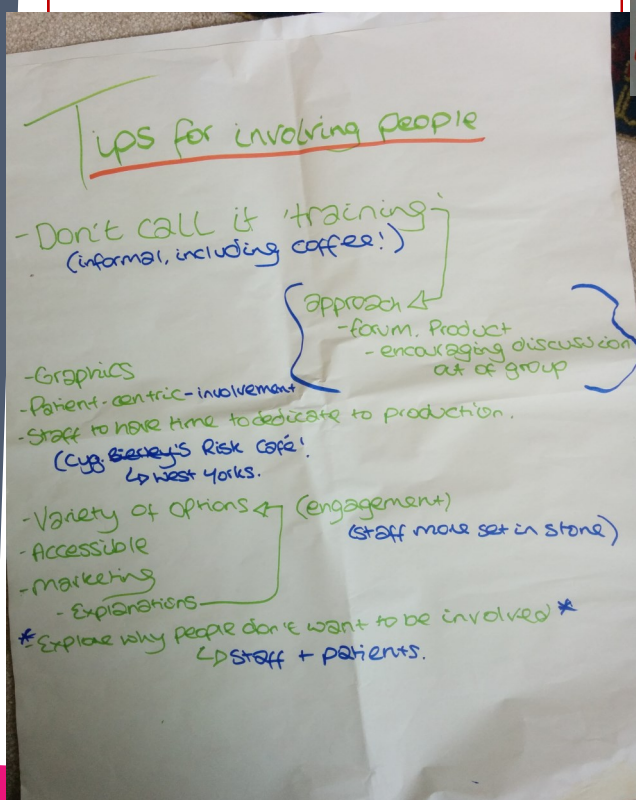 Tips for involving people
- Don't call it 'training'
(informal, including coffee!)
approach
- forum. Product
- encouraging discussion
out of group
- Graphics
- Patient-centric-involvement
- Staff to have time to dedicate to production.
(Cyg. 's Risk Café!
↳ West Yorks.
- Variety of options (engagement)
(staff more set in stone)
- Accessible
- Marketing
- Explanations
* - Explore why people don't want to be involved *
↳ Staff + patients.